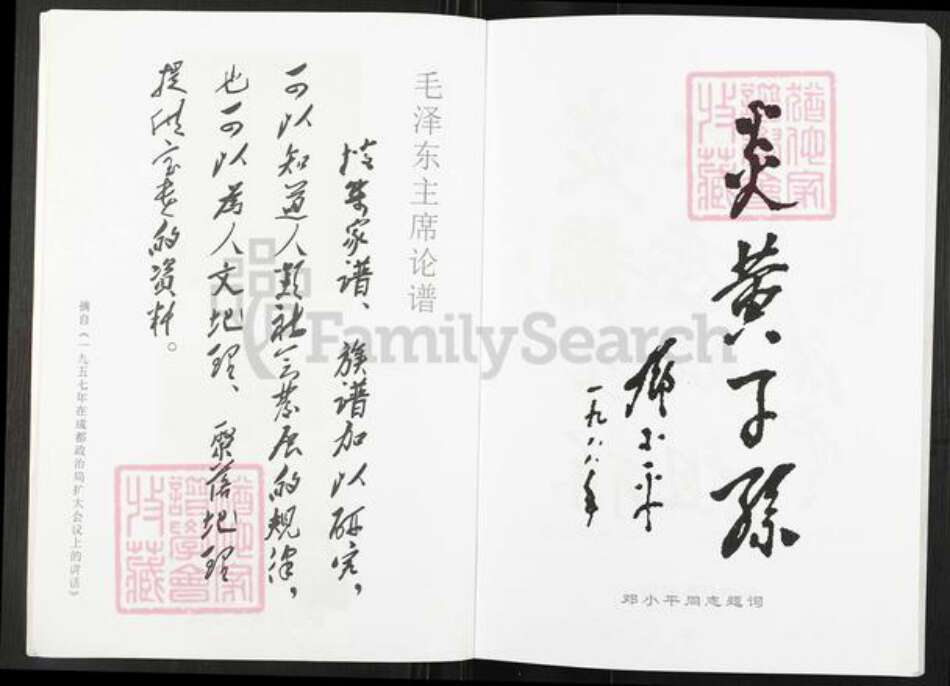 炎黄子孙
邓小平
一九八八年
邓小平同志题词
毛泽东主席论谱
收集家谱、族谱加以研究,
可以知道人类社会发展的规律,
也可以为人文地理、聚落地理
提供宝贵的资料。
摘自《一九五七年在成都政治局扩大会议上的讲话》
猶他家
譜學會
收藏
猶他家
譜學會
收藏
FamilySearch